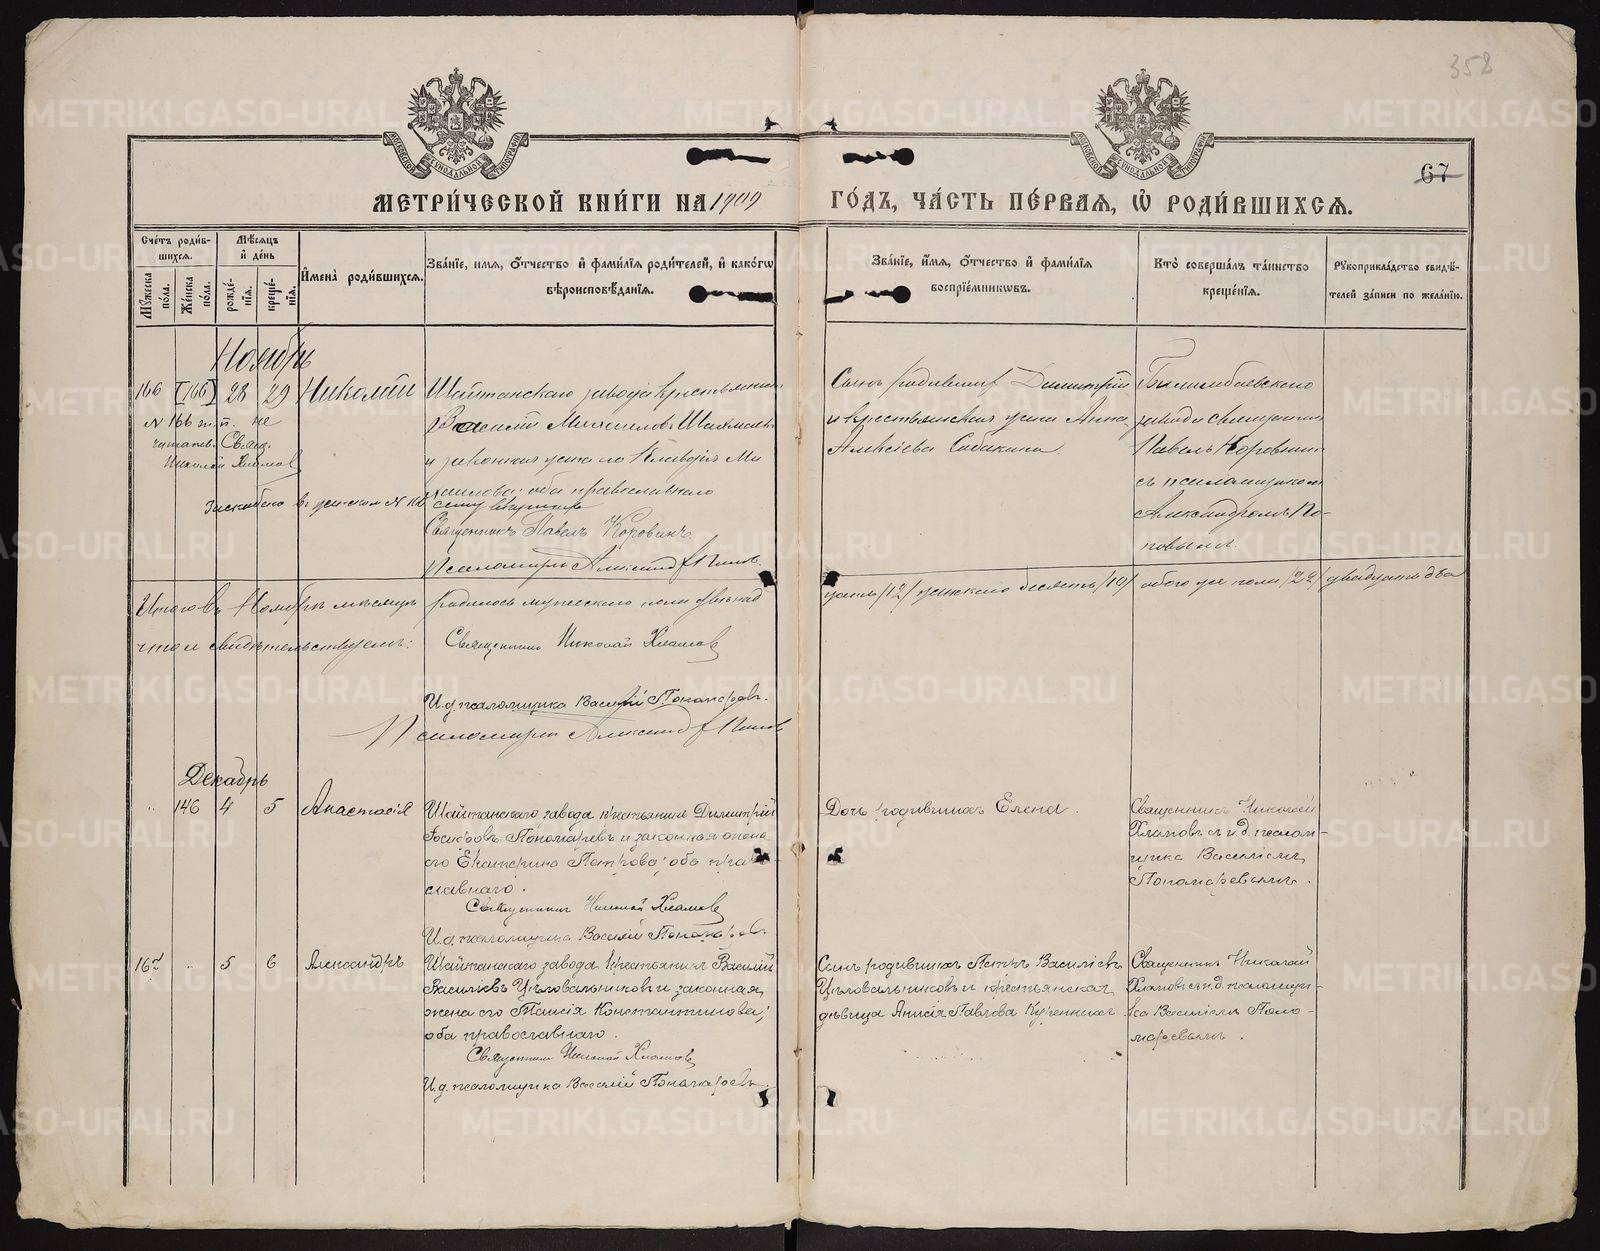 358
МОСКОВСКОЙ СѴНОДАЛЬНОЙ ТИПОГРАФІИ
МОСКОВСКОЙ СѴНОДАЛЬНОЙ ТИПОГРАФІИ
67
МЕТРИ́ЧЕСКОЙ КНИ́ГИ НА 1909 ГО́ДЪ, ЧА́СТЬ ПЕ́РВАЯ, Ѡ РОДИ́ВШИХСЯ.
Сче́тъ роди́вшихся.
Мꙋжеска по́ла.
Же́нска по́ла.
Мѣ́сяцъ и де́нь
рожде́нїя.
креще́нїя.
Имена̀ роди́вшихся.
Зва́нїе, имя, о́тчество и фами́лїя роди́телей, и како́гѡ вѣроисповѣ́данїя.
Зва́нїе, и́мя, о́тчество и фами́лїя воспрїе́мникѡвъ.
Кто̀ соверша́лъ та́инство креще́нїя.
Рꙋкоприкла́дство свидѣ́телей за́писи по жела́нїю.
Ноябрь
166 [166] 28 29 Николай
Шайтанскаго завода крестьянинъ
Василий Михаиловъ
и законная жена его Клавдія Ми
хаилова; оба православнаго
Священникъ Павелъ Коровинъ
Псаломщикъ Александръ Поповъ.
N 166 ж. п. не
читать. Свящ.
Николай Хламов
въ женском N 166
Сынъ Димитрий
и крестьянская жена Анна
Алексіева
Билимбаевскаго
завода священник
Павелъ Коровинъ
съ псаломщикомъ
Александромъ По-
повымъ.
Итого въ Ноябрѣ месяцѣ родилось мужескаго пола двѣнад
цать /12/ женскаго десять /10/ обоего же пола /22/ двадцать два
что и свидѣтельствуемъ:
Священникъ Николай Хламов
И.д. псаломщика Василий Пономаревъ.
Псаломщикъ Александръ Попов
Декабрь
146 4 5 Анастасія
Шайтанскаго завода крестьянинъ Димитрій
Пономаревъ и законная жена
его Екатерина Петрова; оба право
славнаго.
Священникъ Николай Хламов
И.д. псаломщика Василий Пономаревъ
Дочь родившихъ Елена.
Священникъ Николай
Хламовъ с и.д. псалом-
щика Василіемъ
Пономаревымъ.
167 5 6 Александръ
Шайтанскаго завода крестьянинъ Василій
Васильевъ Цѣловальниковъ и законная
жена его Таисія Константинова;
оба православнаго.
Священникъ Николай Хламовъ
И.д. псаломщика Василий Пономаревъ.
Сынъ родившихъ Петръ Василіевъ
Цѣловальниковъ и крестьянская
дѣвица Анисія Павлова
Священникъ Николай
Хламовъ с и.д. псаломщи-
ка Василіемъ Поно-
маревымъ.
METRIKI.GASO-URAL.RU